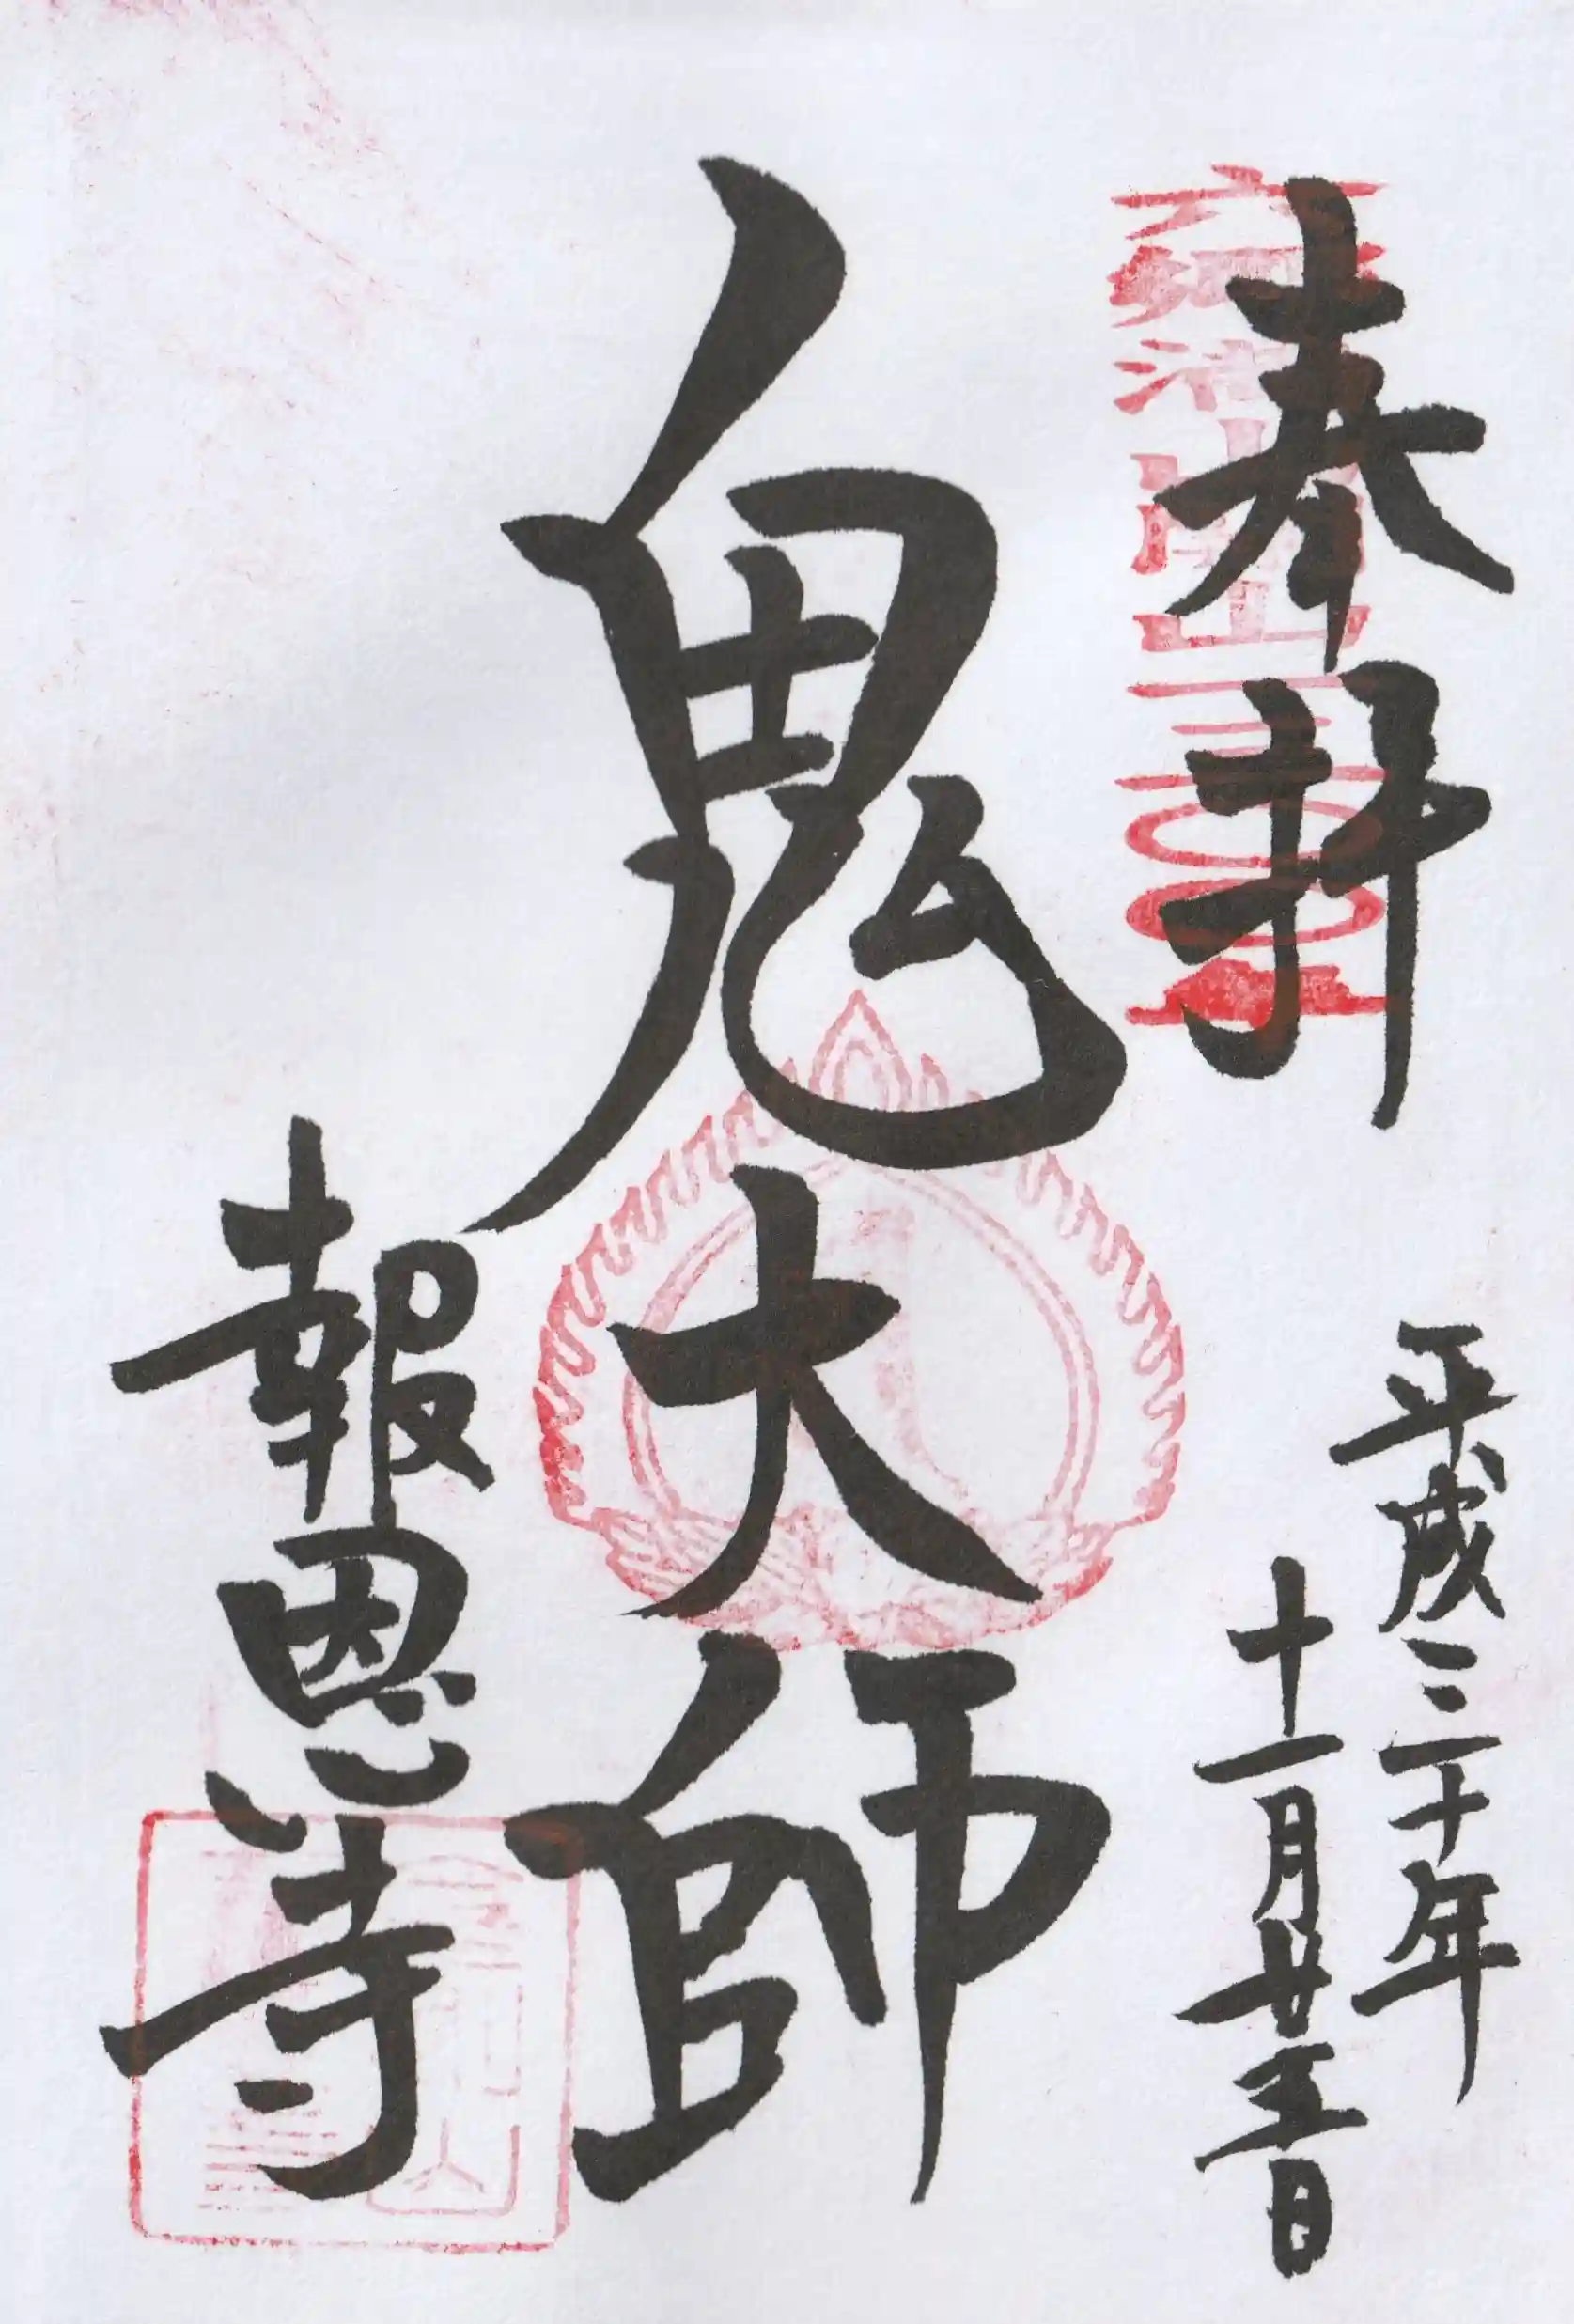 奉拝
平成三十年
十一月廿五日
鬼大師
報恩寺